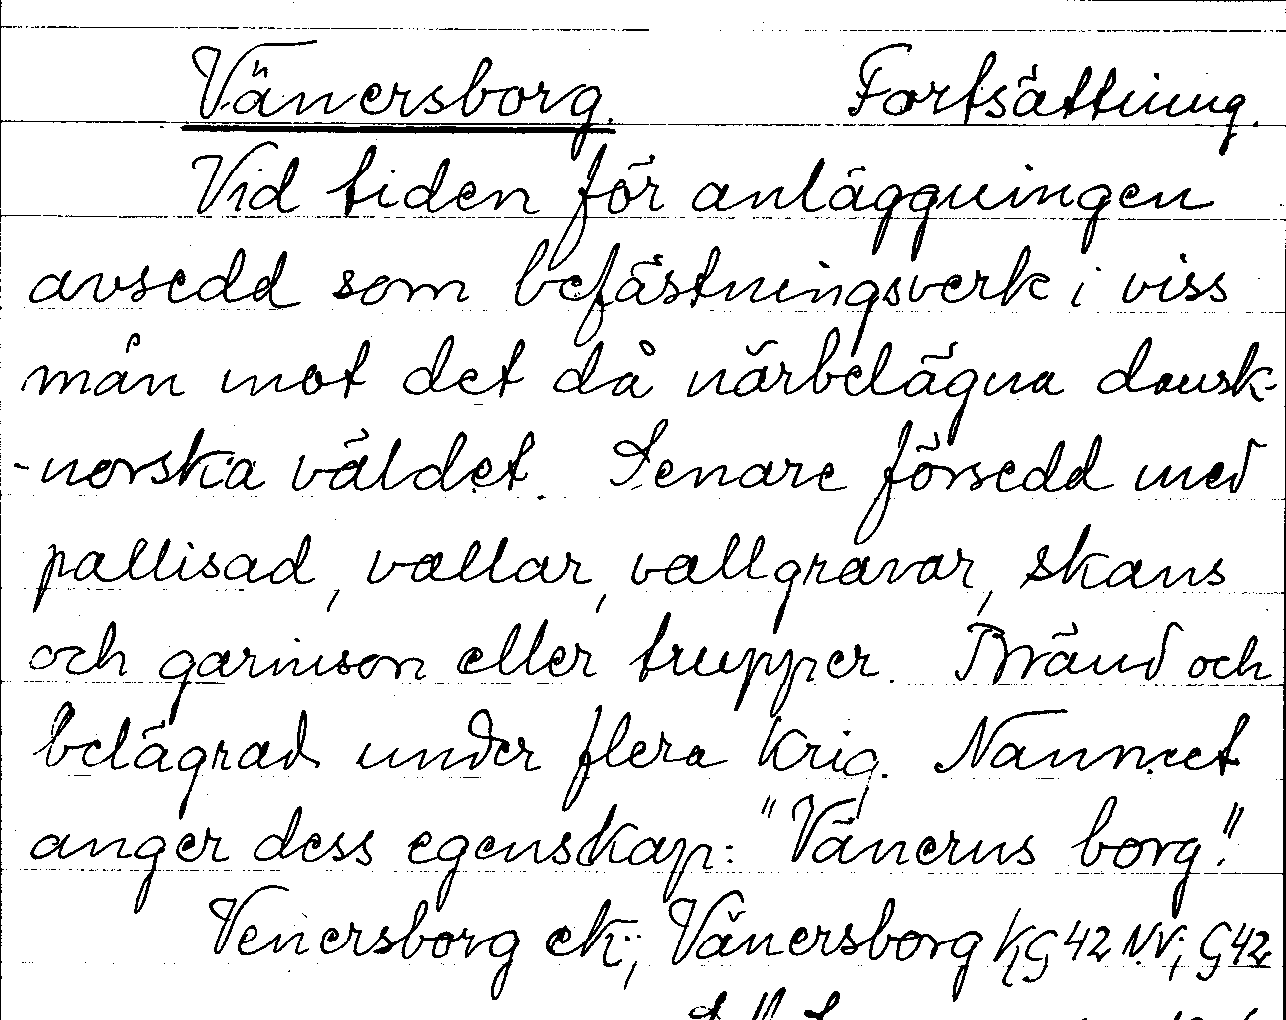 Vänersborg. Fortsättning.
Vid tiden för anläggningen
avsedd som befästningsverk i viss
mån mot det då närbelägna dansk-
-norska väldet. Senare försedd med
pallisad, vallar, vallgravar, skans
och garnison eller trupper. Bränd och
belägrad under flera krig. Namnet
anger dess egenskap: "Vänerns borg".
Venersborg ek; Vänersborg KG 42 NV; G 42